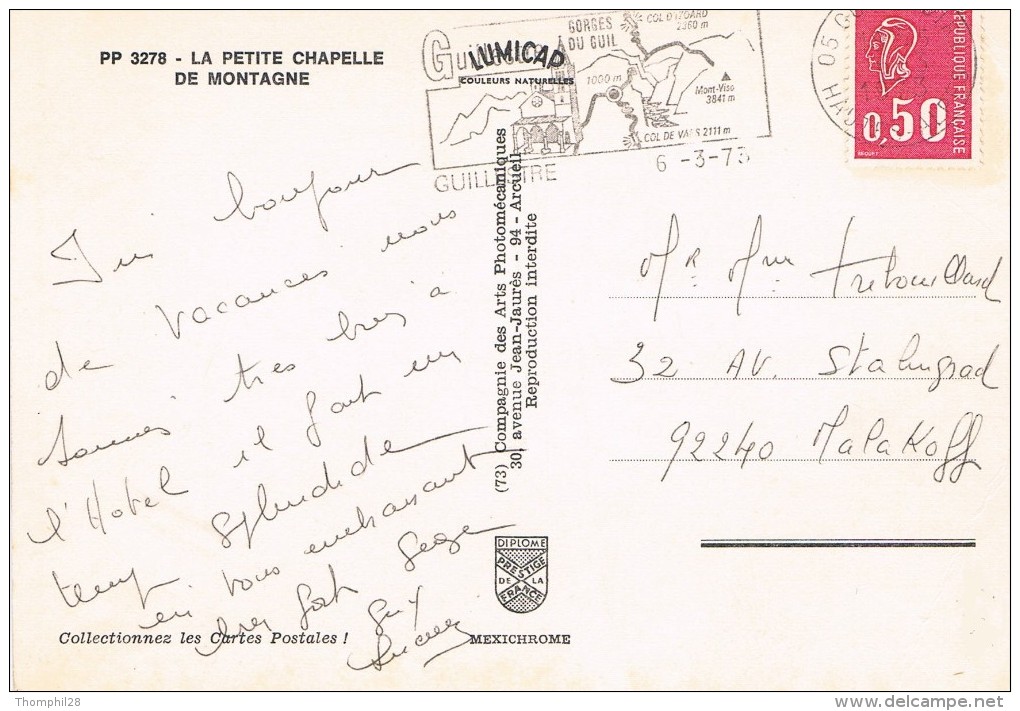 PP 3278 - LA PETITE CHAPELLE
DE MONTAGNE
LUMICAP
COULEURS NATURELLES
GORGES
DU GUIL
COL D'IZOARD
2360 m
1000 m
Mont-Viso
3841 m
COL DE VARS 2111 m
GUILLESTRE
6 -3-73
05
REPUBLIQUE FRANÇAISE
0,50
bonjour
de vacances nous
sommes tres bien à
l'Hotel il fait un
temps splendide
en vous embrassant
bien fort Serge
Guy
(73) Compagnie des Arts Photomécaniques
30, avenue Jean-Jaurès - 94 - Arcueil
Reproduction interdite
Mr Mme Trebouillard
32 AV. Stalingrad
92240 Malakoff
DIPLOME
PRESTIGE
DE LA
FRANCE
Collectionnez les Cartes Postales !
MEXICHROME
Thomphil28
delcampe.net